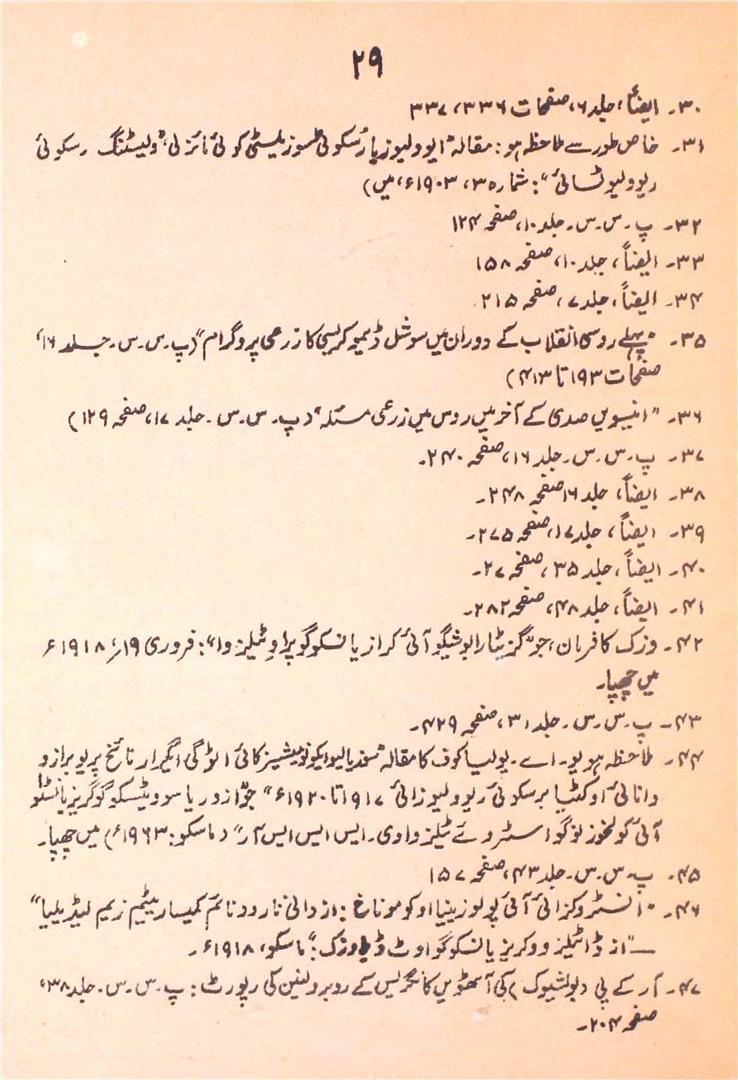 ۲۹
۳۰۔ ایضاً، جلد ۶، صفحات ۳۳۶، ۳۳۷
۳۱۔ خاص طور سے ملاحظہ ہو: مقالہ "ایوولیوزیا رُسکوئی سوزیلیسٹی کوئی نائزلی"، ولیسٹنگ رسکوئی
ریوولیوٹسائی": شمارہ ۳، ۱۹۰۳ء، میں)
۳۲۔ پ۔ س۔ س۔ جلد ۱۰، صفحہ ۱۲۴
۳۳۔ ایضاً، جلد ۱۰، صفحہ ۱۵۸
۳۴۔ ایضاً، جلد ۷، صفحہ ۲۱۵۔
۳۵۔ "پہلے روسی انقلاب کے دوران میں سوشل ڈیموکریسی کا زرعی پروگرام" (پ۔ س۔ س۔ جلد ۱۶،
صفحات ۱۹۳ تا ۴۱۳)
۳۶۔ "انیسویں صدی کے آخر میں روس میں زرعی مسئلہ" (پ۔ س۔ س۔ جلد ۱۷، صفحہ ۱۲۹)
۳۷۔ پ۔ س۔ س۔ جلد ۱۶، صفحہ ۲۴۰۔
۳۸۔ ایضاً، جلد ۱۶ صفحہ ۲۴۸۔
۳۹۔ ایضاً، جلد ۱۷، صفحہ ۲۷۵۔
۴۰۔ ایضاً، جلد ۳۵، صفحہ ۲۷۔
۴۱۔ ایضاً، جلد ۴۸، صفحہ ۲۸۲۔
۴۲۔ وزک کا فرمان، جو "گزیٹا رابوشیگو آئی کرازیانسکوگو پراوٹیلز وا": فروری ۱۹، ۱۹۱۸ء
میں چھپا۔
۴۳۔ پ۔ س۔ س۔ جلد ۳۱، صفحہ ۴۲۹۔
۴۴۔ ملاحظہ ہو یو۔ اے۔ یولیاکوف کا مقالہ "سوزیالیو ایکونومیشیز کائی اٹوگی اگرار نائخ پریوبرازو
وانائی اوکٹیابرسکوئی ریوولیوزائی ۱۹۱۷ تا ۱۹۲۰ء" جو "ازوریا سوویٹسکوگو کریزیانسٹوا
آئی کولخوز نوگو اسٹروئے ٹیلز واوی۔ ایس ایس ایس آر" (ماسکو: ۱۹۶۳ء) میں چھپا۔
۴۵۔ پ۔ س۔ س۔ جلد ۴۳، صفحہ ۱۵۷
۴۶۔ "انسٹروکزائی آئی پولوزینیا اوکوموناخ: ازدانی نارودنائم کمیساریٹیم زیم لیڈیلیا"
— "ازڈاٹیلز وو کریزیانسکوگو اوٹ ڈیلا وزک": ماسکو، ۱۹۱۸ء۔
۴۷۔ آر کے پی (بولشیوک) کی آٹھویں کانگریس کے روبرو لینن کی رپورٹ: پ۔ س۔ س۔ جلد ۳۸،
صفحہ ۲۰۴۔